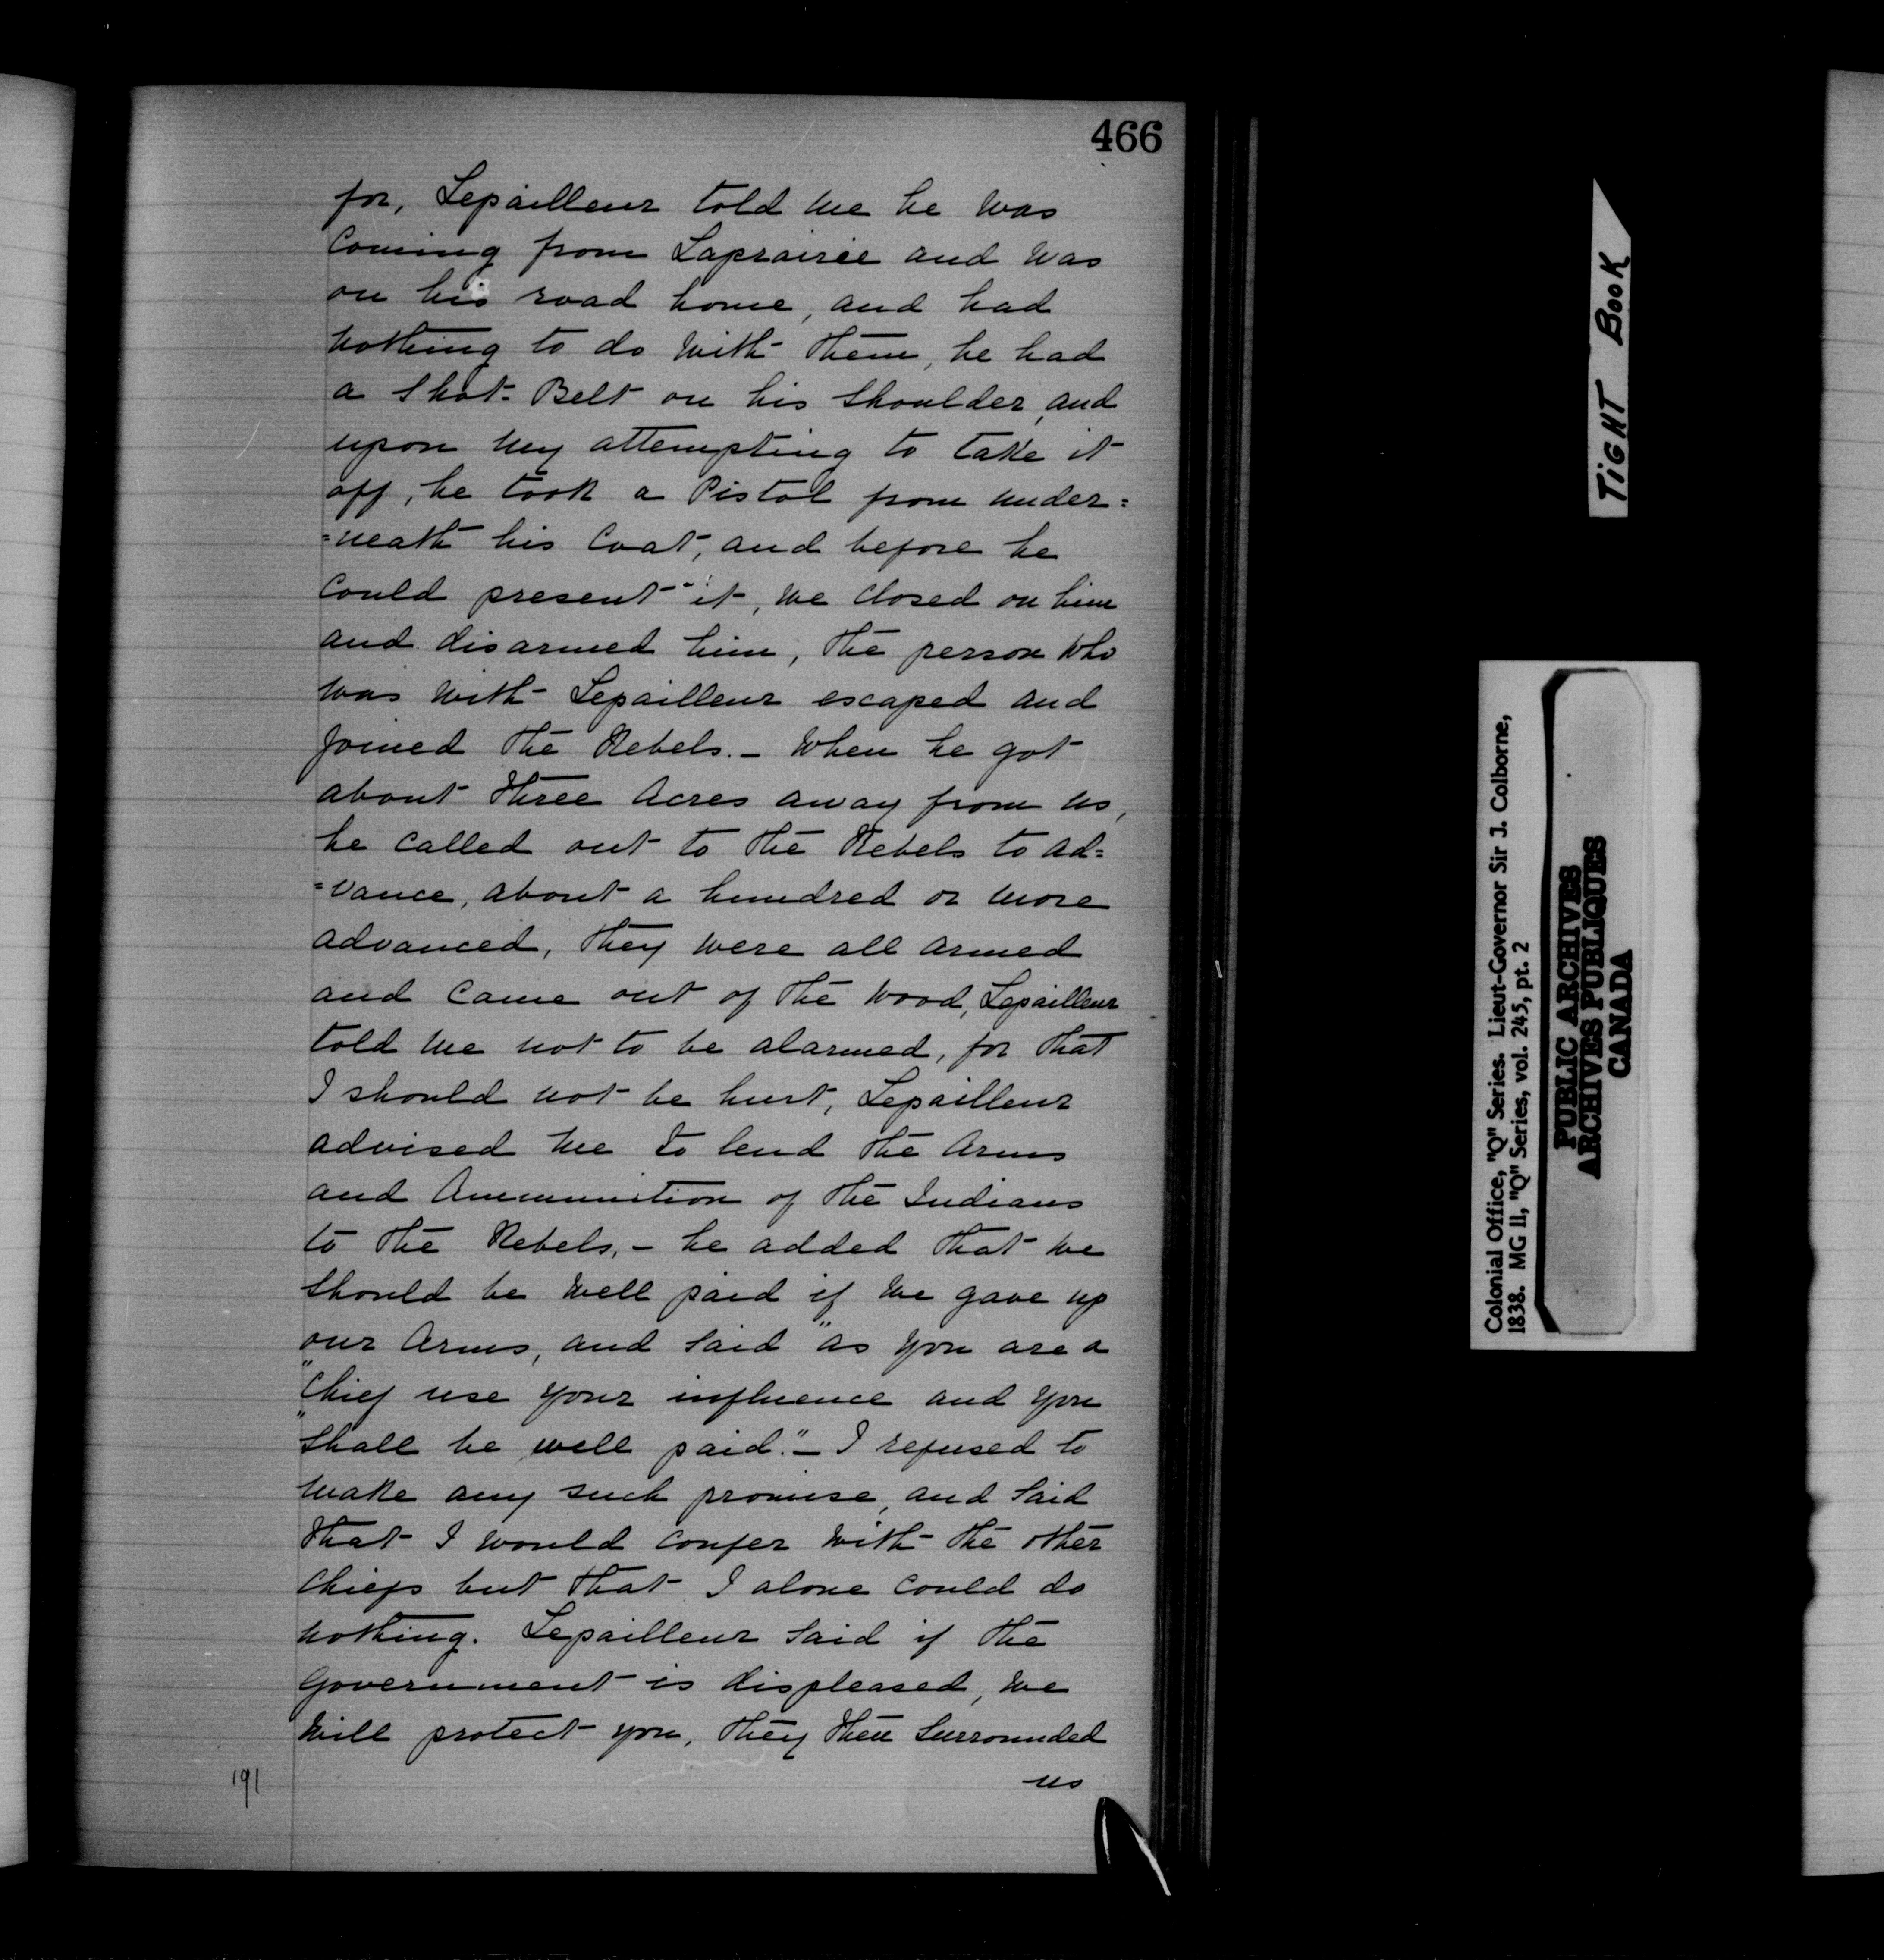 466
for, Lepailleur told me he was
Coming from Laprairie and was
on his road home, and had
nothing to do with them, he had
a Shot-Belt on his Shoulder, and
upon my attempting to take it
off, he took a Pistol from under=
=neath his Coat, and before he
Could present it, we Closed on him
and disarmed him, the person who
was with Lepailleur escaped and
joined the Rebels. - When he got
about three Acres away from us,
he Called out to the Rebels to ad=
=vance, about a hundred or more
advanced, they were all armed
and Came out of the Wood, Lepailleur
told me not to be alarmed, for that
I should not be hurt, Lepailleur
advised me to lend the Arms
and Ammunition of the Indians
to the Rebels, - he added that we
Should be well paid if we gave up
our Arms, and Said "as you are a
"Chief use your influence and you
"Shall be well paid." - I refused to
make any such promise, and Said
that I would Confer with the other
Chiefs but that I alone Could do
nothing. Lepailleur Said if the
Government is displeased, we
will protect you, they then Surrounded
us
191
TIGHT BOOK
Colonial Office, "Q" Series. Lieut-Governor Sir J. Colborne,
1838. MG 11, "Q" Series, vol. 245, pt. 2
PUBLIC ARCHIVES
ARCHIVES PUBLIQUES
CANADA